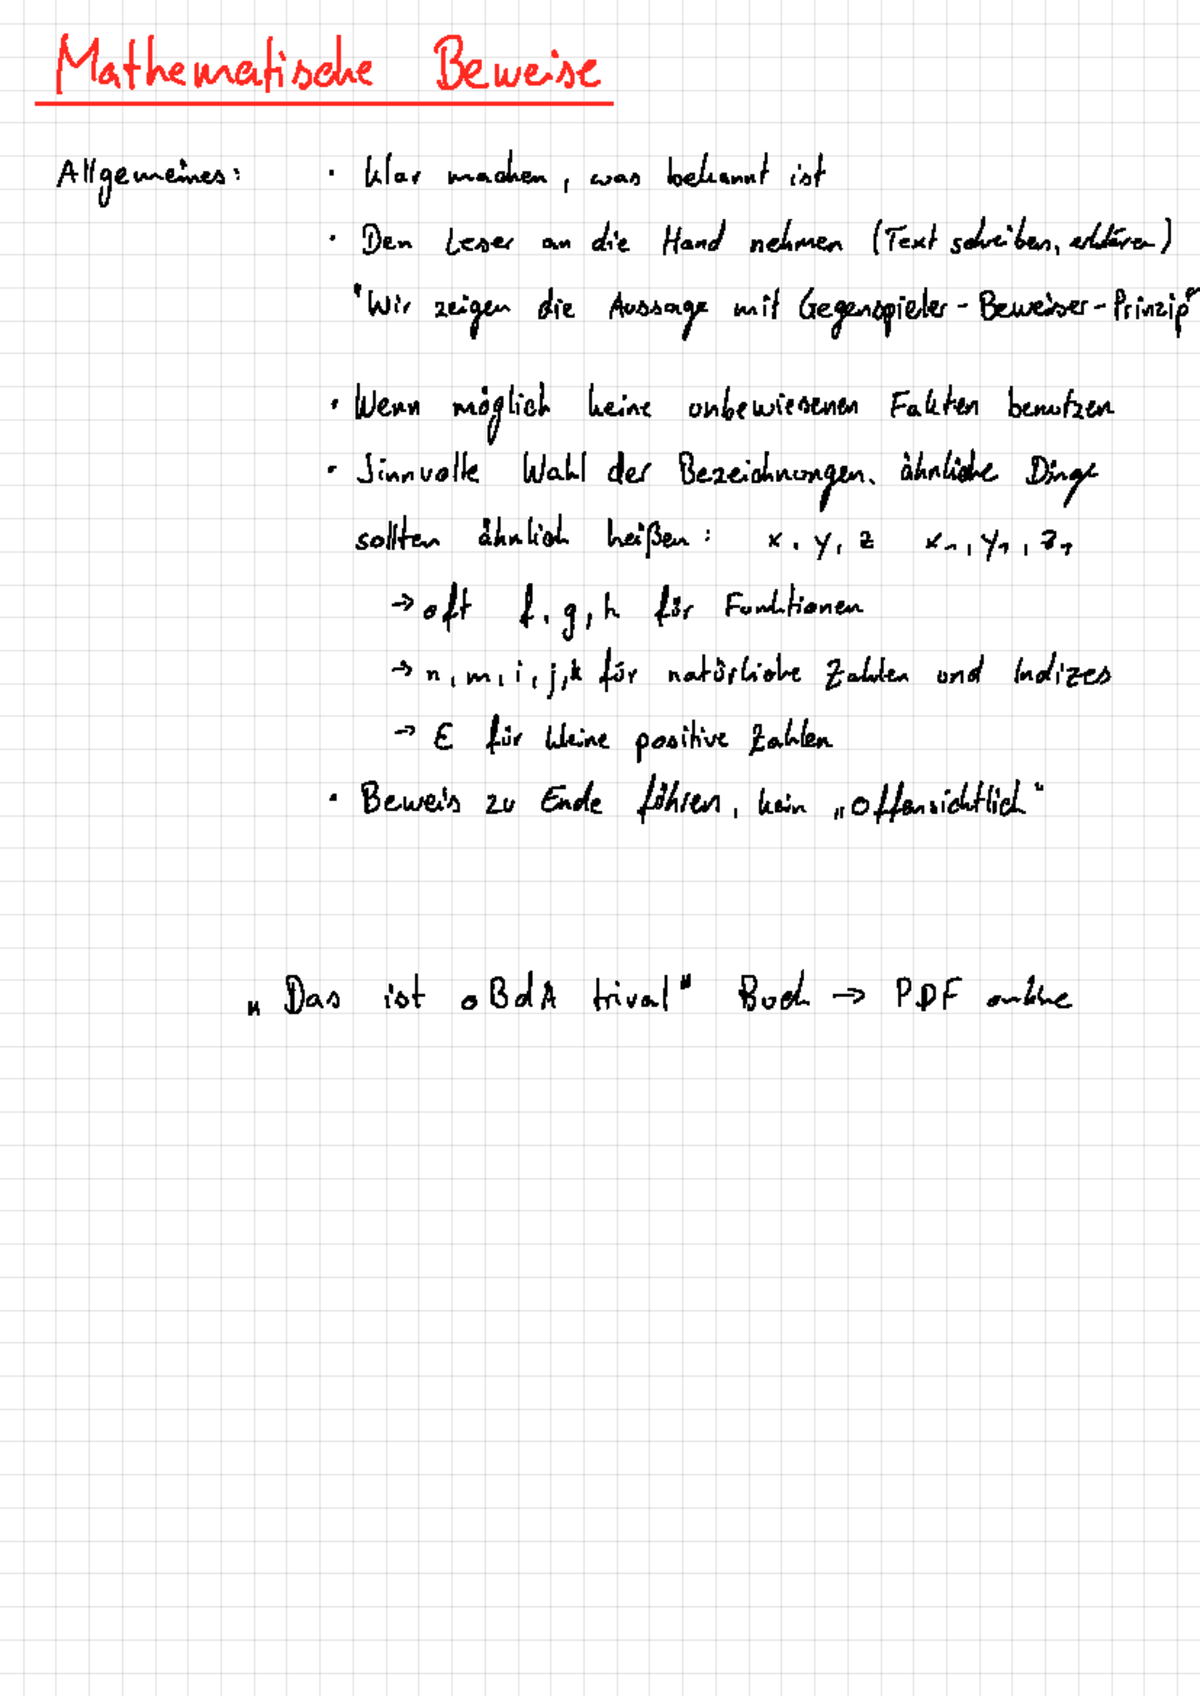 Mathematische Beweise
Allgemeines: · klar machen, was bekannt ist
· Den Leser an die Hand nehmen (Text schreiben, erklären)
"Wir zeigen die Aussage mit Gegenspieler-Beweiser-Prinzip"
· Wenn möglich keine unbewiesenen Fakten benutzen
· Sinnvolle Wahl der Bezeichnungen, ähnliche Dinge
sollten ähnlich heißen: x, y, z x₁, y₁, z₁
→ oft f, g, h für Funktionen
→ n, m, i, j, k für natürliche Zahlen und Indizes
→ ε für kleine positive Zahlen
· Beweis zu Ende führen, kein „Offensichtlich"
„Das ist oBdA trival" Buch → PDF online